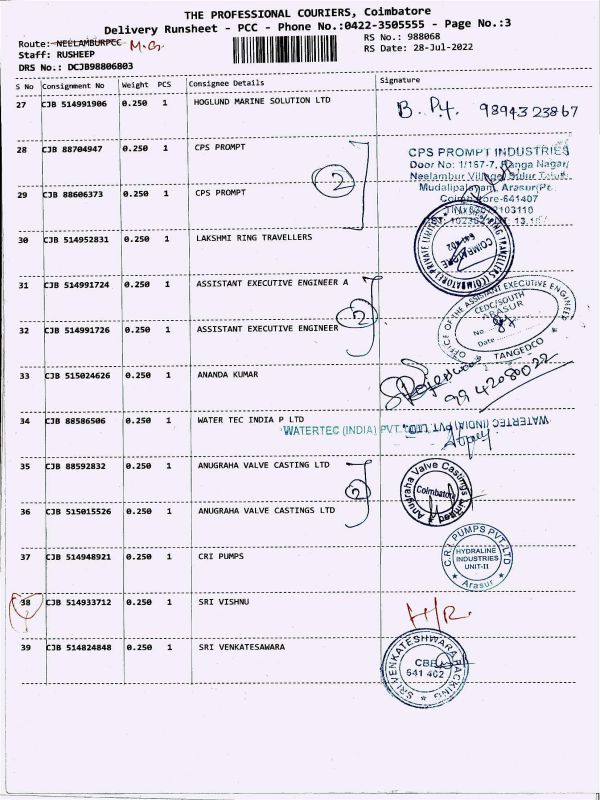 THE PROFESSIONAL COURIERS, Coimbatore
Delivery Runsheet - PCC - Phone No.:0422-3505555 - Page No.:3
Route: NEELAMBURPCC M.G.
RS No.: 988068
Staff: RUSHEEP
RS Date: 28-Jul-2022
DRS No.: DCJB98806803
S No Consignment No Weight PCS Consignee Details Signature
27 CJB 514991906 0.250 1 HOGLUND MARINE SOLUTION LTD
98943 23867
28 CJB 88704947 0.250 1 CPS PROMPT
CPS PROMPT INDUSTRIES
Door No: 1/167-7, Ranga Nagar
Neelambur Village, Sulur Taluk
2
29 CJB 88606373 0.250 1 CPS PROMPT
Mudalipalayam, Arasur(Po)
Coimbatore-641407
30 CJB 514952831 0.250 1 LAKSHMI RING TRAVELLERS
LAKSHMI RING TRAVELLERS (COIMBATORE) PRIVATE LIMITED
COIMBATORE
641 402
31 CJB 514991724 0.250 1 ASSISTANT EXECUTIVE ENGINEER A
2
OFFICE OF THE ASSISTANT EXECUTIVE ENGINEER
CEDC/SOUTH
ARASUR
No
Date
TANGEDCO
32 CJB 514991726 0.250 1 ASSISTANT EXECUTIVE ENGINEER
33 CJB 515024626 0.250 1 ANANDA KUMAR
9942080022
34 CJB 88586506 0.250 1 WATER TEC INDIA P LTD
WATERTEC (INDIA) PVT. LTD.
WATERTEC (INDIA) PVT. LTD.
35 CJB 88592832 0.250 1 ANUGRAHA VALVE CASTING LTD
2
Anugraha Valve Castings Limited
Coimbatore
36 CJB 515015526 0.250 1 ANUGRAHA VALVE CASTINGS LTD
37 CJB 514948921 0.250 1 CRI PUMPS
C.R.I. PUMPS PVT. LTD
HYDRALINE
INDUSTRIES
UNIT-II
Arasur
38 CJB 514933712 0.250 1 SRI VISHNU
H/R.
39 CJB 514824848 0.250 1 SRI VENKATESAWARA
SRI VENKATESHWARA PACKING
CBE
641 402